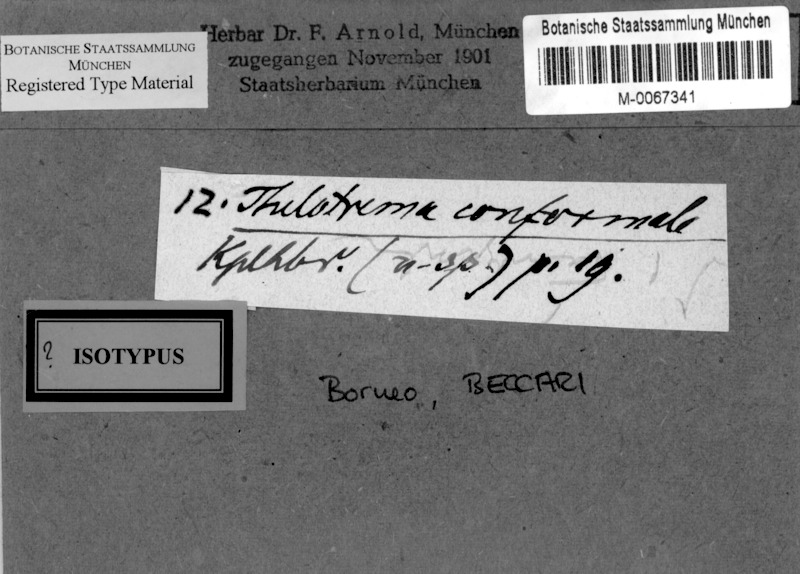 BOTANISCHE STAATSSAMMLUNG
MÜNCHEN
Registered Type Material
Herbar Dr. F. Arnold, München
zugegangen November 1901
Staatsherbarium München
Botanische Staatssammlung München
M-0067341
12. Thelotrema conformale
Kplhbr. (n. sp.) p. 19.
? ISOTYPUS
Borneo, BECCARI